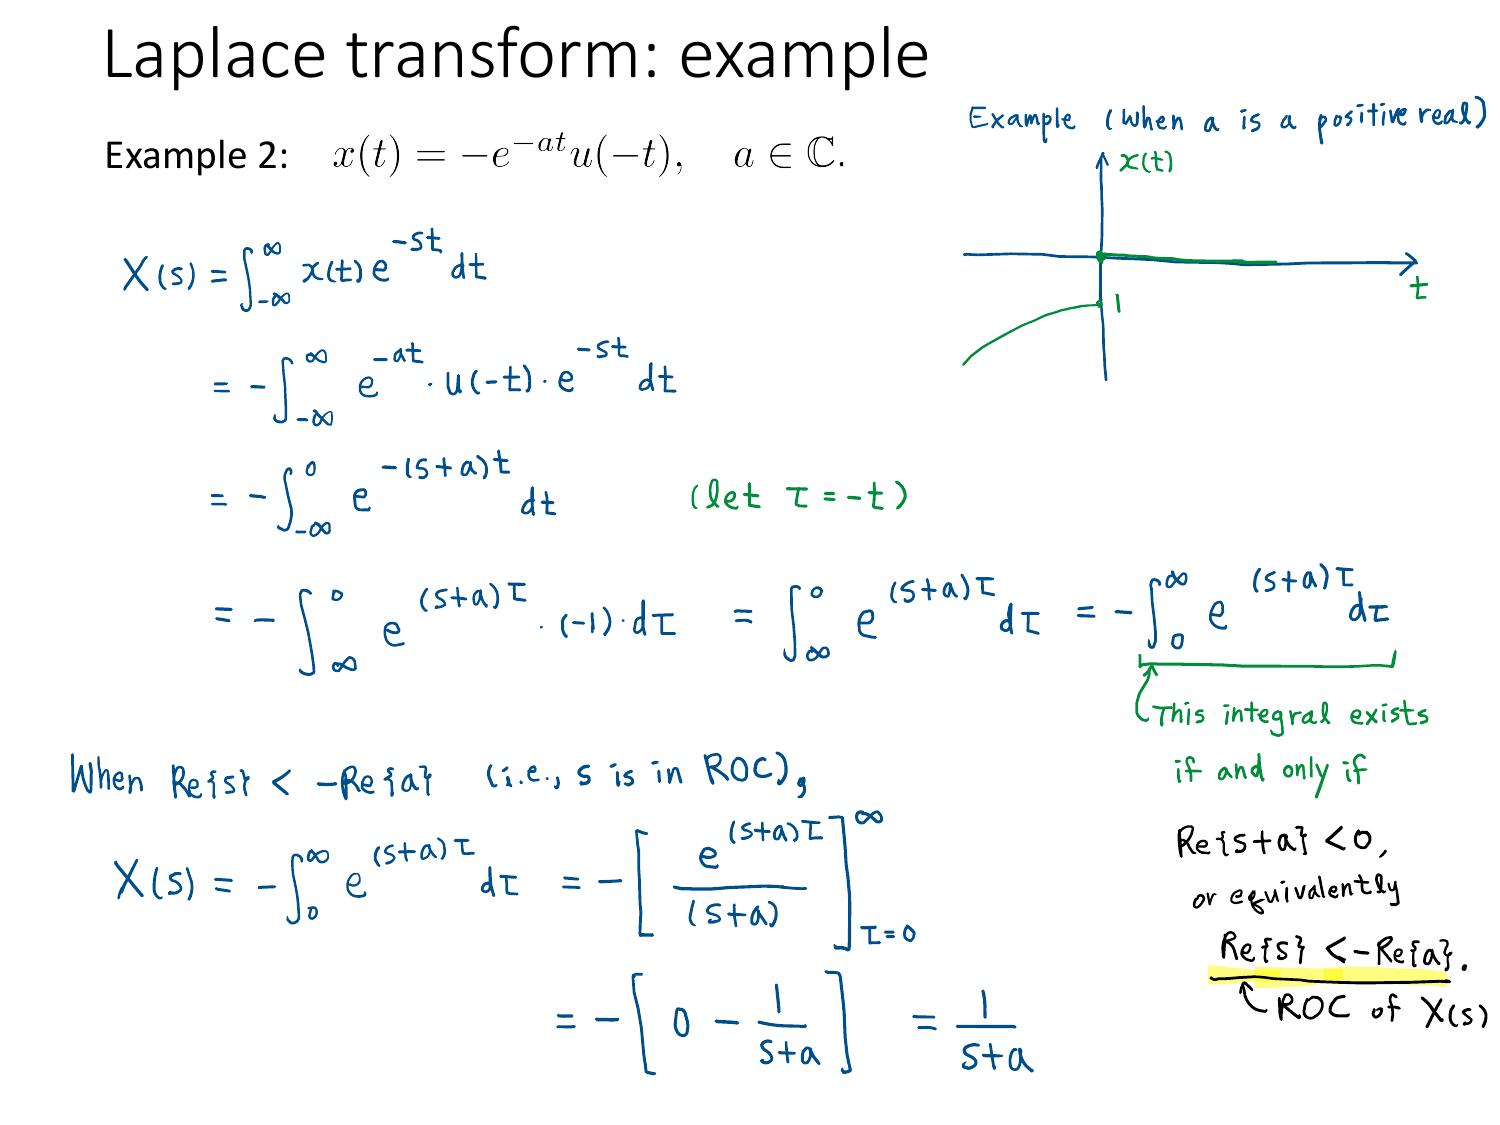 Laplace transform: example
Example (when a is a positive real)
Example 2: x(t) = −e^{−at}u(−t), a ∈ ℂ.
x(t)
t
1
X(s) = ∫_{-∞}^{∞} x(t) e^{-st} dt
= -∫_{-∞}^{∞} e^{-at} · u(-t) · e^{-st} dt
= -∫_{-∞}^{0} e^{-(s+a)t} dt (let τ = -t)
= -∫_{∞}^{0} e^{(s+a)τ} · (-1) · dτ = ∫_{∞}^{0} e^{(s+a)τ} dτ = -∫_{0}^{∞} e^{(s+a)τ} dτ
This integral exists
if and only if
Re{s+a} < 0,
or equivalently
Re{s} < -Re{a}.
ROC of X(s)
When Re{s} < -Re{a} (i.e., s is in ROC),
X(s) = -∫_{0}^{∞} e^{(s+a)τ} dτ = -[e^{(s+a)τ}/(s+a)]_{τ=0}^{∞}
= -[0 - 1/(s+a)] = 1/(s+a)